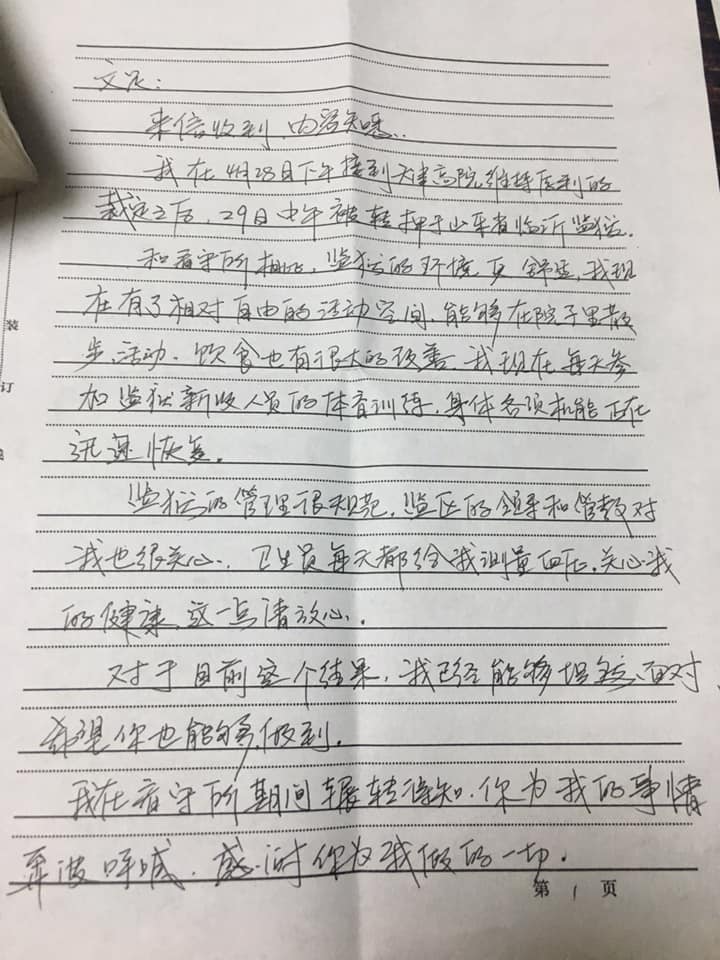 文足:
来信收到,内容知悉.
我在4月28日下午接到天津高院维持原判的
裁定之后,29日中午被转押于山东省临沂监狱.
和看守所相比,监狱的环境更舒适,我现
在有了相对自由的活动空间,能够在院子里散
步、活动、饮食也有很大的改善.我现在每天参
加监狱新收人员的体育训练,身体各项机能正在
迅速恢复。
监狱的管理很规范,监区的领导和管教对
我也很关心,卫生员每天都给我测量血压,关心我
的健康,这一点请放心.
对于目前这个结果,我已经能够坦然面对
希望你也能够做到.
我在看守所期间辗转得知,你为我的事情
奔波呼喊,感谢你为我做的一切.
第 1 页
装
订